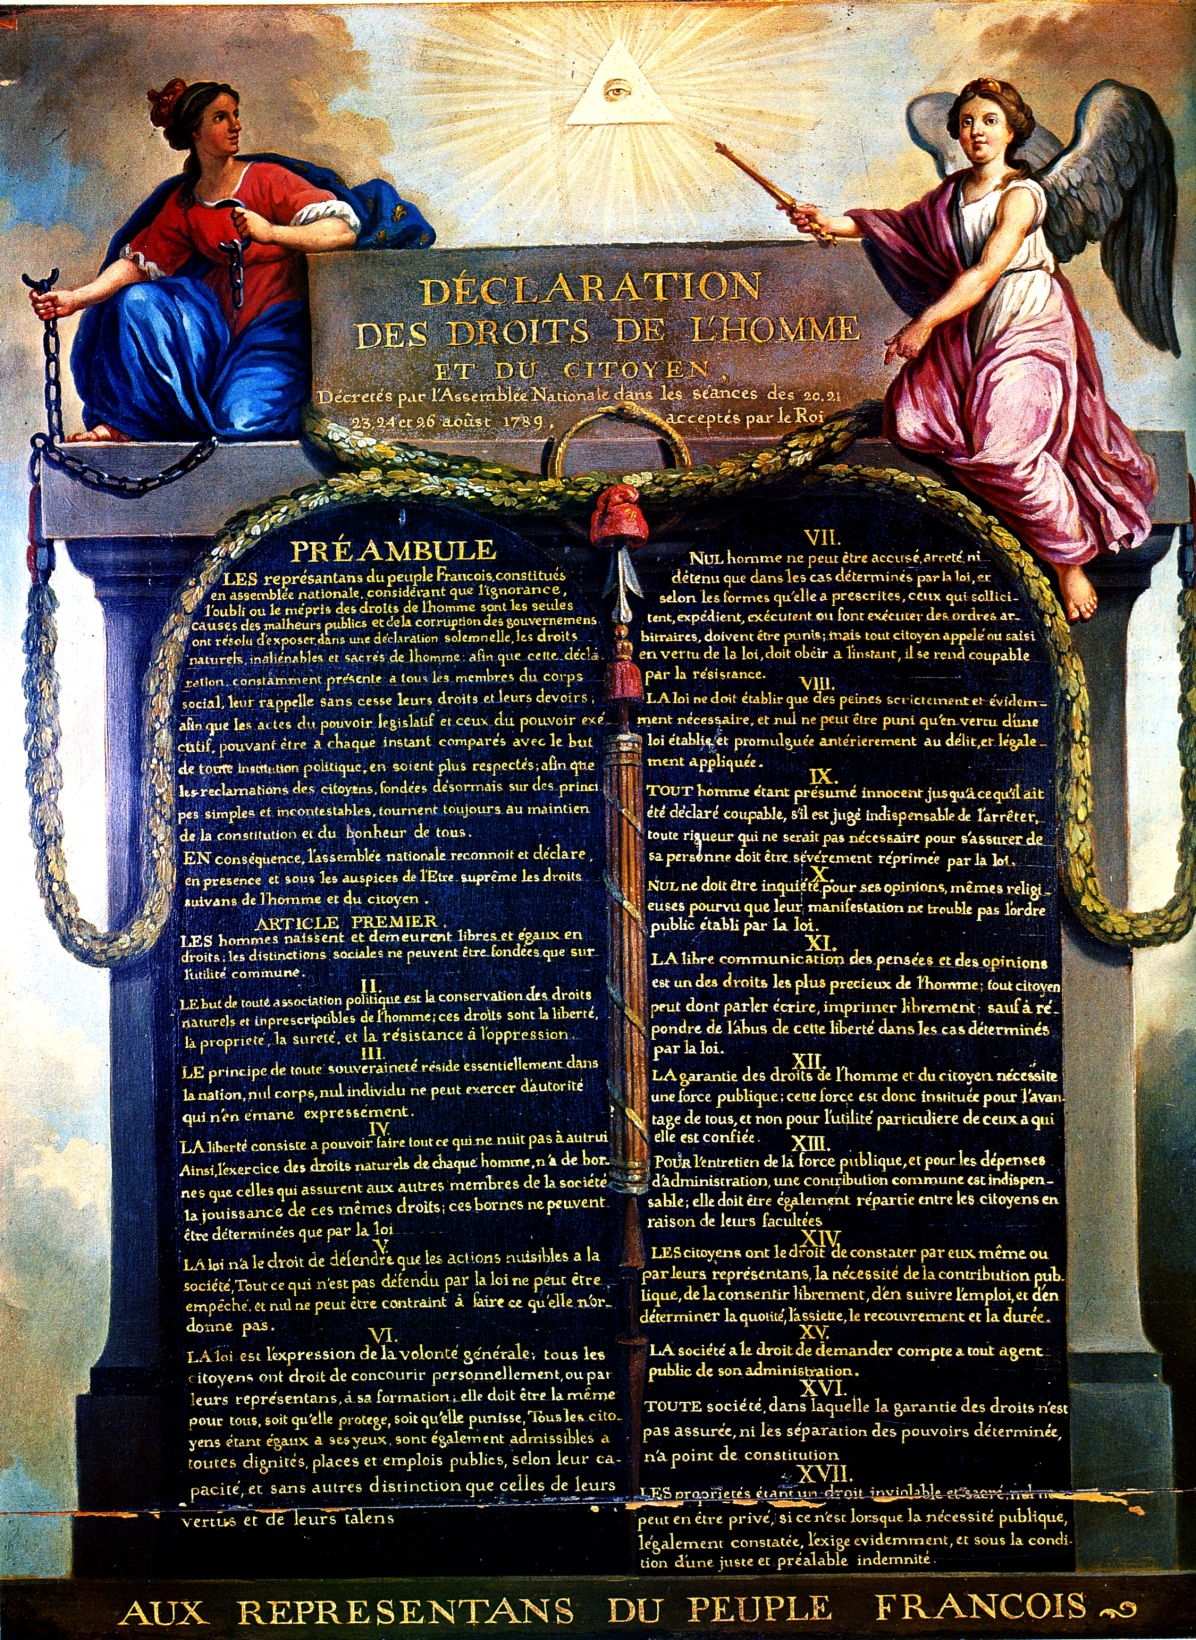 DÉCLARATION
DES DROITS DE L'HOMME
ET DU CITOYEN,
Décretés par l'Assemblée Nationale dans les séances des 20, 21
23, 24 et 26 aoûst 1789, acceptés par le Roi
PRÉAMBULE
LES représantans du peuple Francois, constitués
en assemblée nationale, considérant que l'ignorance,
l'oubli ou le mépris des droits de l'homme sont les seules
causes des malheurs publics et de la corruption des gouvernemens
ont résolu d'exposer, dans une déclaration solemnelle, les droits
naturels, inaliénables et sacrés de l'homme: afin que cette décla-
ration, constamment présente a tous les membres du corps
social, leur rappelle sans cesse leurs droits et leurs devoirs;
afin que les actes du pouvoir legislatif et ceux du pouvoir exé-
cutif, pouvant être a chaque instant comparés avec le but
de toute institution politique, en soient plus respectés; afin que
les reclamations des citoyens, fondées désormais sur des princi
pes simples et incontestables, tournent toujours au maintien
de la constitution et du bonheur de tous.
EN conséquence, l'assemblée nationale reconnoit et déclare,
en presence et sous les auspices de l'Etre suprême les droits
suivans de l'homme et du citoyen.
ARTICLE PREMIER.
LES hommes naissent et demeurent libres et égaux en
droits; les distinctions sociales ne peuvent être fondées que sur
l'utilité commune.
II.
LE but de toute association politique est la conservation des droits
naturels et inprescriptibles de l'homme; ces droits sont la liberté,
la propriete, la sureté, et la résistance à l'oppression.
III.
LE principe de toute souveraineté réside essentiellement dans
la nation, nul corps, nul individu ne peut exercer d'autorité
qui n'en émane expressément.
IV.
LA liberté consiste a pouvoir faire tout ce qui ne nuit pas à autrui
Ainsi, l'exercice des droits naturels de chaque homme, n'a de bor-
nes que celles qui assurent aux autres membres de la société
la jouissance de ces mêmes droits; ces bornes ne peuvent
être déterminées que par la loi
V.
LA loi n'a le droit de défendre que les actions nuisibles a la
société, Tout ce qui n'est pas défendu par la loi ne peut être
empêché, et nul ne peut être contraint à faire ce qu'elle n'or-
donne pas.
VI.
LA loi est l'expression de la volonté générale; tous les
citoyens ont droit de concourir personnellement, ou par
leurs représentans, à sa formation; elle doit être la même
pour tous, soit qu'elle protege, soit qu'elle punisse, Tous les cito-
yens étant égaux a ses yeux, sont également admissibles a
toutes dignités, places et emplois publics, selon leur ca-
pacité, et sans autres distinction que celles de leurs
vertus et de leurs talens
VII.
NUL homme ne peut être accusé, arreté, ni
détenu que dans les cas déterminés par la loi, et
selon les formes qu'elle a prescrites, ceux qui sollici-
tent, expédient, exécutent ou font exécuter des ordres ar-
bitraires, doivent être punis; mais tout citoyen appelé ou saisi
en vertu de la loi, doit obéir a l'instant, il se rend coupable
par la résistance.
VIII.
LA loi ne doit établir que des peines scrictement et évidem-
ment nécessaire, et nul ne peut être puni qu'en vertu d'une
loi établie et promulguée antérierement au délit, et légale-
ment appliquée.
IX.
TOUT homme étant présumé innocent jusqu'à ce qu'il ait
été déclaré coupable, s'il est jugé indispensable de l'arrêter,
toute rigueur qui ne serait pas nécessaire pour s'assurer de
sa personne doit être sévérement réprimée par la loi.
X.
NUL ne doit être inquiété pour ses opinions, mêmes religi-
euses pourvu que leur manifestation ne trouble pas l'ordre
public établi par la loi.
XI.
LA libre communication des pensées et des opinions
est un des droits les plus precieux de l'homme; tout citoyen
peut dont parler écrire, imprimer librement: sauf à ré-
pondre de l'abus de cette liberté dans les cas déterminés
par la loi.
XII.
LA garantie des droits de l'homme et du citoyen nécessite
une force publique; cette force est donc instituée pour l'avan-
tage de tous, et non pour l'utilité particuliere de ceux a qui
elle est confiée.
XIII.
POUR l'entretien de la force publique, et pour les dépenses
d'administration, une contribution commune est indispen-
sable; elle doit être également répartie entre les citoyens en
raison de leurs facultées
XIV.
LES citoyens ont le droit de constater par eux même ou
par leurs représentans, la nécessité de la contribution pub-
lique, de la consentir librement, d'en suivre l'emploi, et d'en
déterminer la quotité, l'assiette, le recouvrement et la durée.
XV.
LA société a le droit de demander compte a tout agent
public de son administration.
XVI.
TOUTE société, dans laquelle la garantie des droits n'est
pas assurée, ni les séparation des pouvoirs déterminée,
n'a point de constitution
XVII.
LES proprietés étant un droit inviolable et sacré, nul ne
peut en être privé, si ce n'est lorsque la nécessité publique,
légalement constatée, l'exige evidemment, et sous la condi-
tion d'une juste et préalable indemnité.
AUX REPRESENTANS DU PEUPLE FRANCOIS